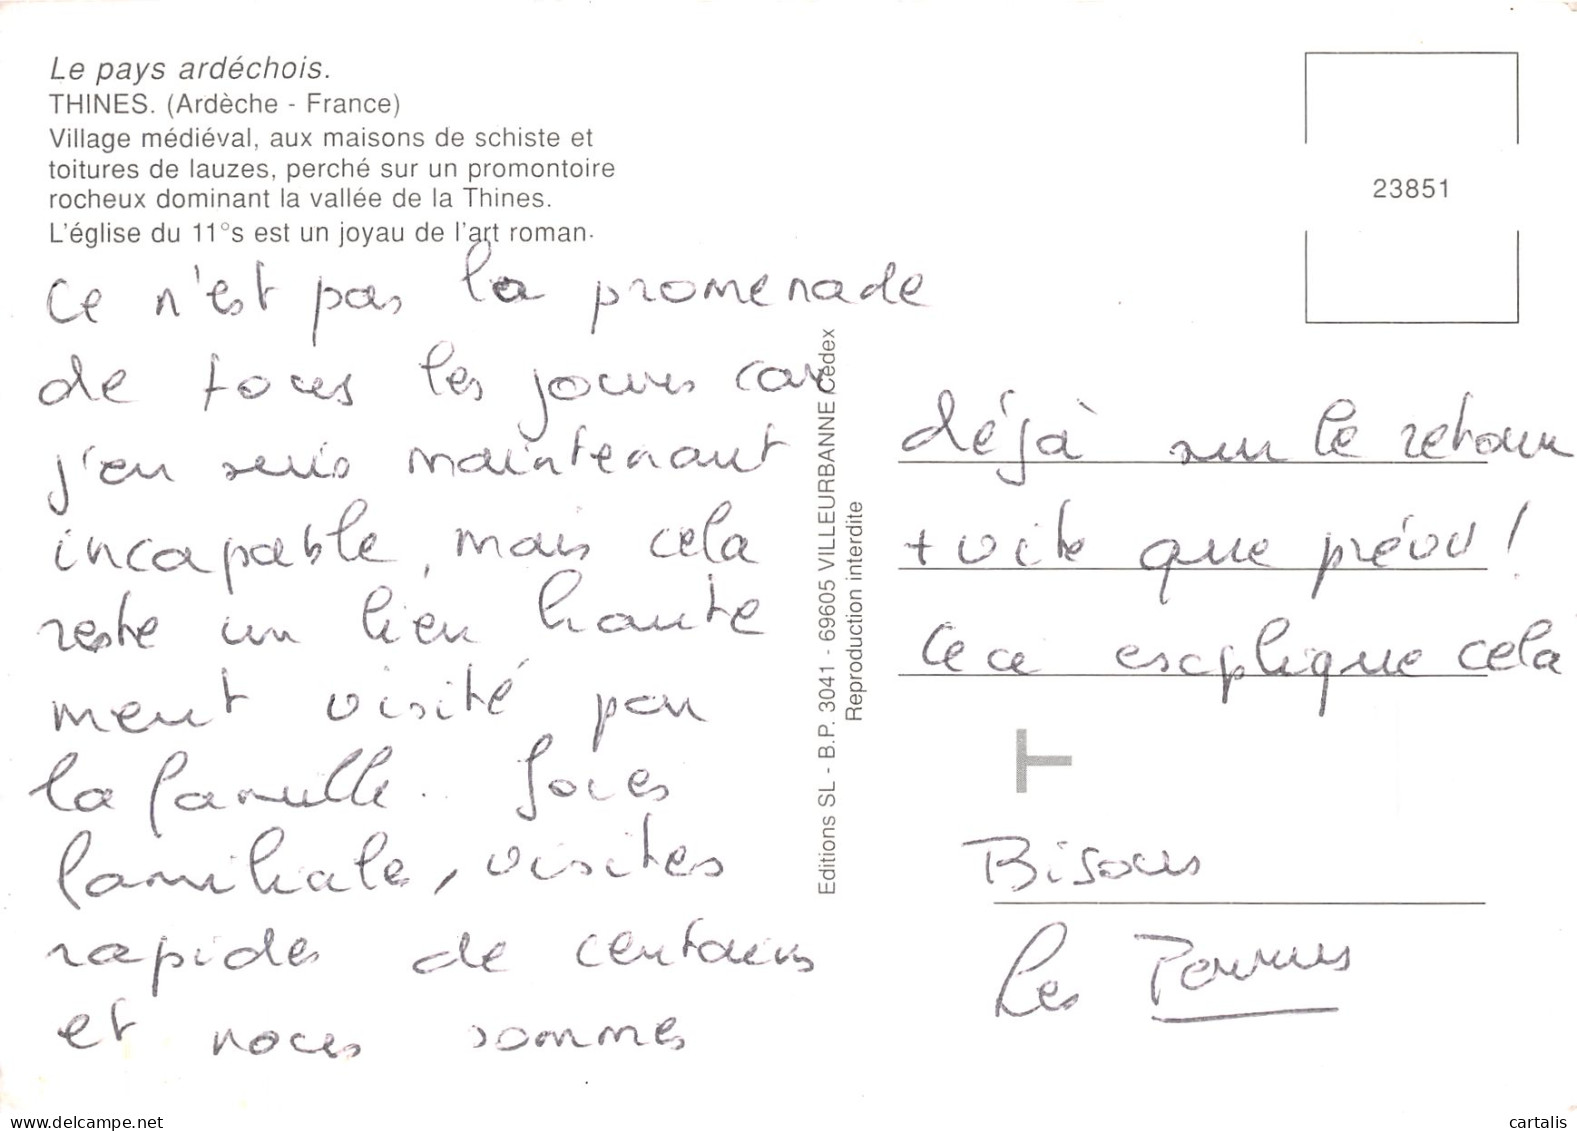 Le pays ardéchois.
THINES. (Ardèche - France)
Village médiéval, aux maisons de schiste et
toitures de lauzes, perché sur un promontoire
rocheux dominant la vallée de la Thines.
L'église du 11°s est un joyau de l'art roman.
23851
Ce n'est pas la promenade
de tous les jours car
j'en suis maintenant
incapable, mais cela
reste un lieu haute
ment visité par
la famille.. Joies
familiale, visites
rapides de certains
et nous sommes
Editions SL - B.P. 3041 - 69605 VILLEURBANNE Cedex
Reproduction interdite
déjà sur le retour
+ vite que prévu !
Ceci explique cela
T
Bisous
Les
www.delcampe.net
cartalis